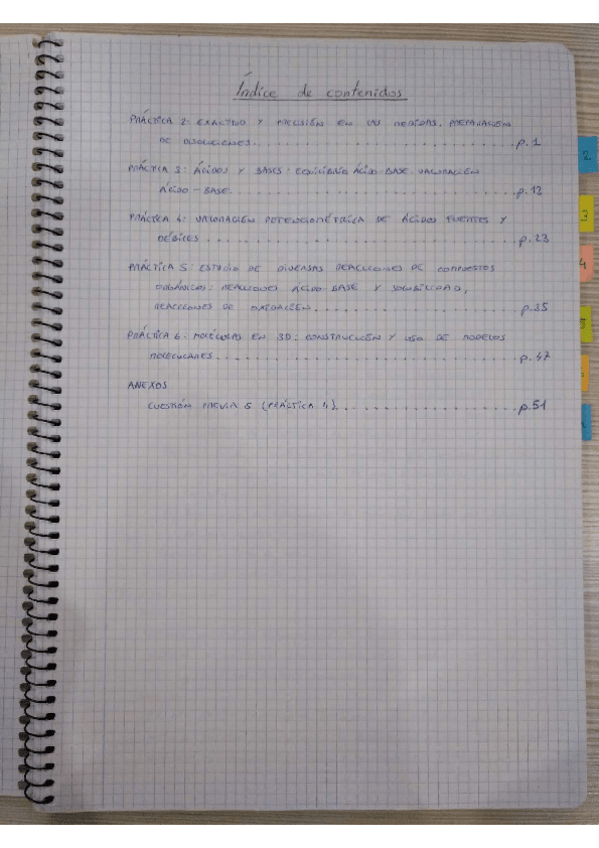 Índice de contenidos
PRÁCTICA 2: EXACTITUD Y PRECISIÓN EN LAS MEDIDAS. PREPARACIÓN
DE DISOLUCIONES. . . . . . . . . . . . . . . . . . . . . . . . . . p.1
PRÁCTICA 3: ÁCIDOS Y BASES: EQUILIBRIO ÁCIDO-BASE. VALORACIÓN
ÁCIDO-BASE. . . . . . . . . . . . . . . . . . . . . . . . . . . . p.13
PRÁCTICA 4: VALORACIÓN POTENCIOMÉTRICA DE ÁCIDOS FUERTES Y
DÉBILES . . . . . . . . . . . . . . . . . . . . . . . . . . . . . p.23
PRÁCTICA 5: ESTUDIO DE DIVERSAS REACCIONES DE COMPUESTOS
ORGÁNICOS: REACCIONES ÁCIDO-BASE Y SOLUBILIDAD,
REACCIONES DE OXIDACIÓN. . . . . . . . . . . . . . . . . . p.35
PRÁCTICA 6: MOLÉCULAS EN 3D: CONSTRUCCIÓN Y USO DE MODELOS
MOLECULARES. . . . . . . . . . . . . . . . . . . . . . . . . . . p.47
ANEXOS
CUESTIÓN PREVIA 5 (PRÁCTICA 4). . . . . . . . . . . . . . . . p.51
2
3
4
5